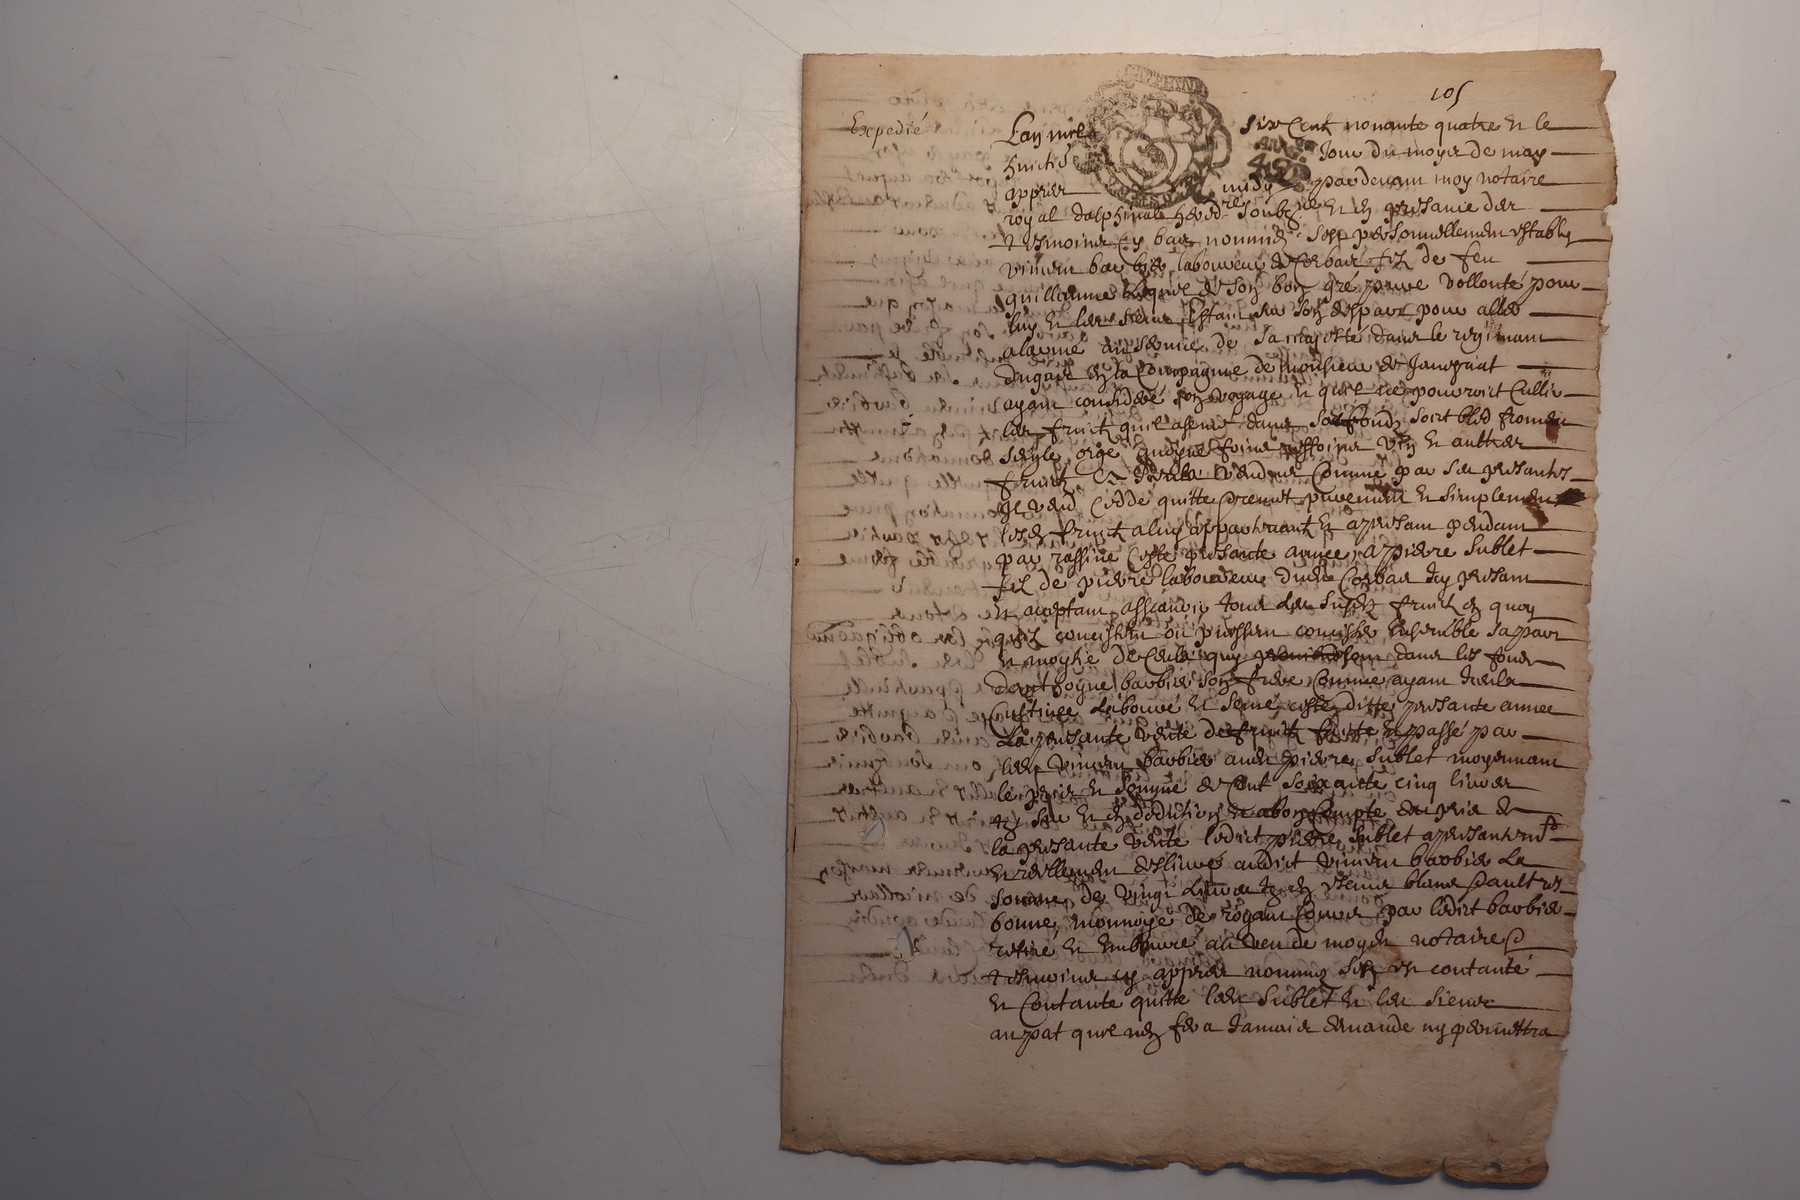 105
Expedié
Lan mil six Cent nonante quatre et le
huictie Jour du moys de may
apprès midy pardevant moy notaire
royal dalphinal hered.re soubz.né et en presance des
tesmoins cy bas nommés sest personnellement establi
vincent barbier laboureur de Corbas filz de feu
guillaume lequel de son bon gré pure vollonté pour
luy et les siens Estant sur son despart pour aller
alarmé au service de sa majesté dans le regimant
en la Compagnie de monsieur de
ayant consideré son voyage et quil ne pourroit
les fruict quil a semé dans son fondz soit bled froment
seigle orge foins vin et aultres
fruictz vendre Comme par ses presantes
Il vend Cedde quitte remet purement et simplement
fruict a luy appartenant et apresant pendant
par rassine Ceste presante année a pierre Sublet
filz de pierre laboureur dudit Corbas Icy presant
et aceptant assçavoir tous les susd fruict en quoy
quilz concistent ou puissent concister Ensemble sa part
et moytié de Ceulx quy sont dans les fondz
dantoyne barbier son frere Comme ayant
Cultivé labouré et semé ceste ditte presante année
La presante vente de fruict faitte et passé par
ledit vincent barbier audit pierre Sublet moyennant
le prix et somme de Cent soixante cinq livres
sur et en dedution et a bon compte du prix de
la presante vente ledict pierre Sublet a presantement
et reellement deslivré audict vincent barbier La
somme de vingt livres en blancs aultres
bonne monnoye de royaume Courant par ledict barbier
retiré et Embourcé au veu de moydit notaire
tesmoins cy apprès nommés sen est contanté
et Contante quitte ledit Sublet et les siens
au pat quil nen fera Jamais demande ny permettra